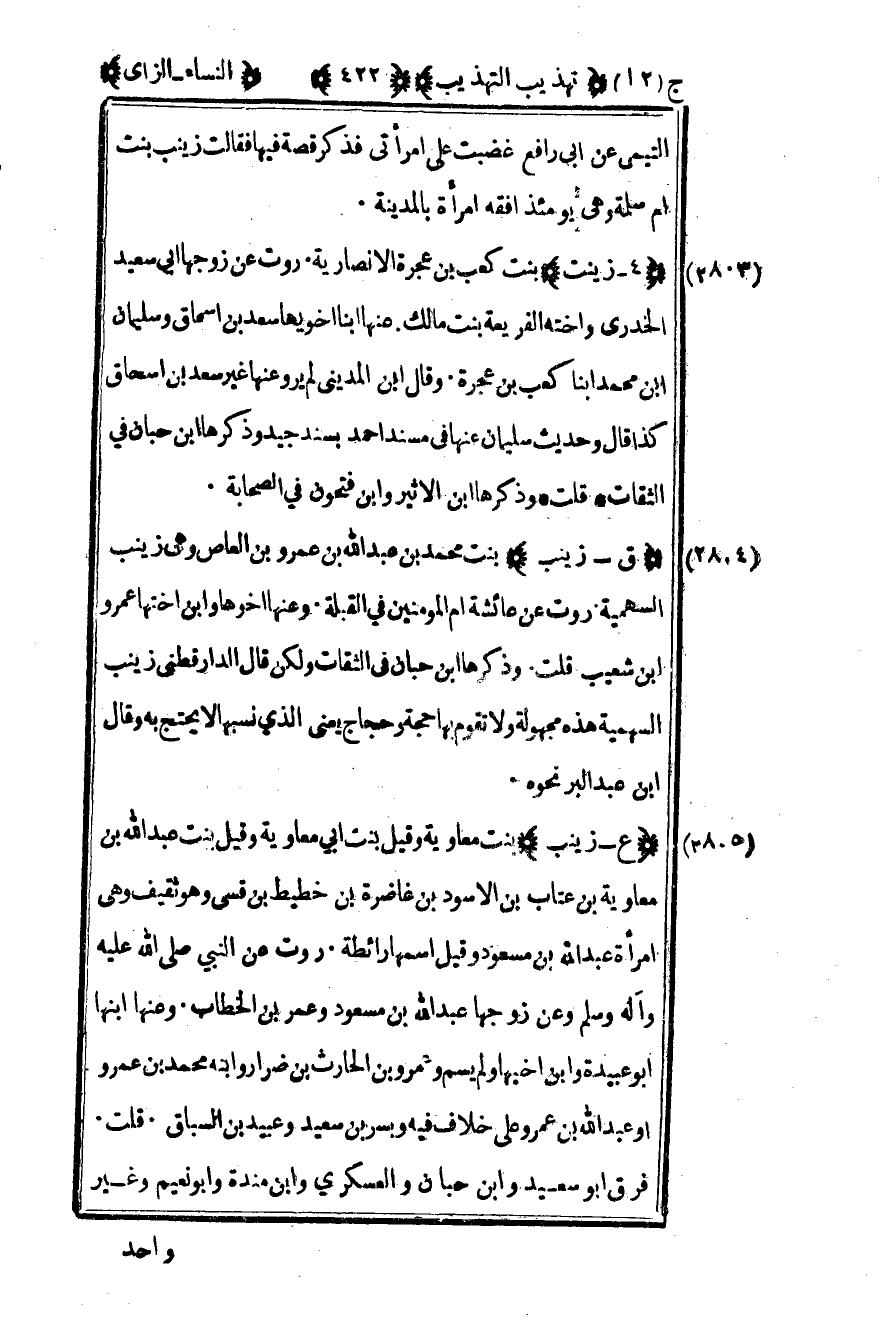 ج (١٢) ﴿ تهذيب التهذيب ﴾ ﴿ ٤٢٢ ﴾ ﴿ النساء ـ الزاى ﴾
التيمى عن ابى رافع غضبت على امرأتى فذكر قصة فيها فقالت زينب بنت
ام سلمة وهى يومئذ افقه امرأة بالمدينة ٠
(٢٨٠٣) ﴿ ٤ ـ زينت ﴾ بنت كعب بن عجرة الانصارية ٠ روت عن زوجها ابي سعيد
الخدرى واخته الفريعة بنت مالك . عنها ابنا اخويها سعد بن اسحاق وسليمان
ابن محمد ابنا كعب بن عجرة ٠ وقال ابن المدينى لم يرو عنها غير سعد بن اسحاق
كذا قال وحديث سليمان عنها فى مسند احمد بسند جيد وذكرها ابن حبان في
الثقات * قلت * وذكرها ابن الاثير وابن فتحون في الصحابة ٠
(٢٨٠٤) ﴿ ق ـ زينب ﴾ بنت محمد بن عبدالله بن عمرو بن العاص وهى زينب
السهمية ٠ روت عن عائشة ام المومنين في القبلة ٠ وعنها اخوها وابن اختها عمرو
ابن شعيب قلت ٠ وذكرها ابن حبان فى الثقات ولكن قال الدار قطنى زينب
السهمية هذه مجهولة ولا تقوم بها حجة وحجاج يعنى الذي نسبها لا يحتج به وقال
ابن عبدالبر نحوه ٠
(٢٨٠٥) ﴿ ع ـ زينب ﴾ بنت معاوية وقيل بنت ابي معاوية وقيل بنت عبدالله بن
معاوية بن عتاب بن الاسود بن غاضرة بن خطيط بن قسى وهو ثقيف وهى
امرأة عبدالله بن مسعود وقيل اسمها رائطة ٠ روت عن النبي صلى الله عليه
وآله وسلم وعن زوجها عبدالله بن مسعود وعمر بن الخطاب ٠ وعنها ابنها
ابو عبيدة وابن اخيها ولم يسم وعمرو بن الحارث بن ضرار وابنه محمد بن عمرو
او عبدالله بن عمرو على خلاف فيه وبسر بن سعيد وعبيد بن السباق ٠ قلت ٠
فرق ابو سعيد وابن حبان والعسكري وابن مندة وابو نعيم وغير
واحد